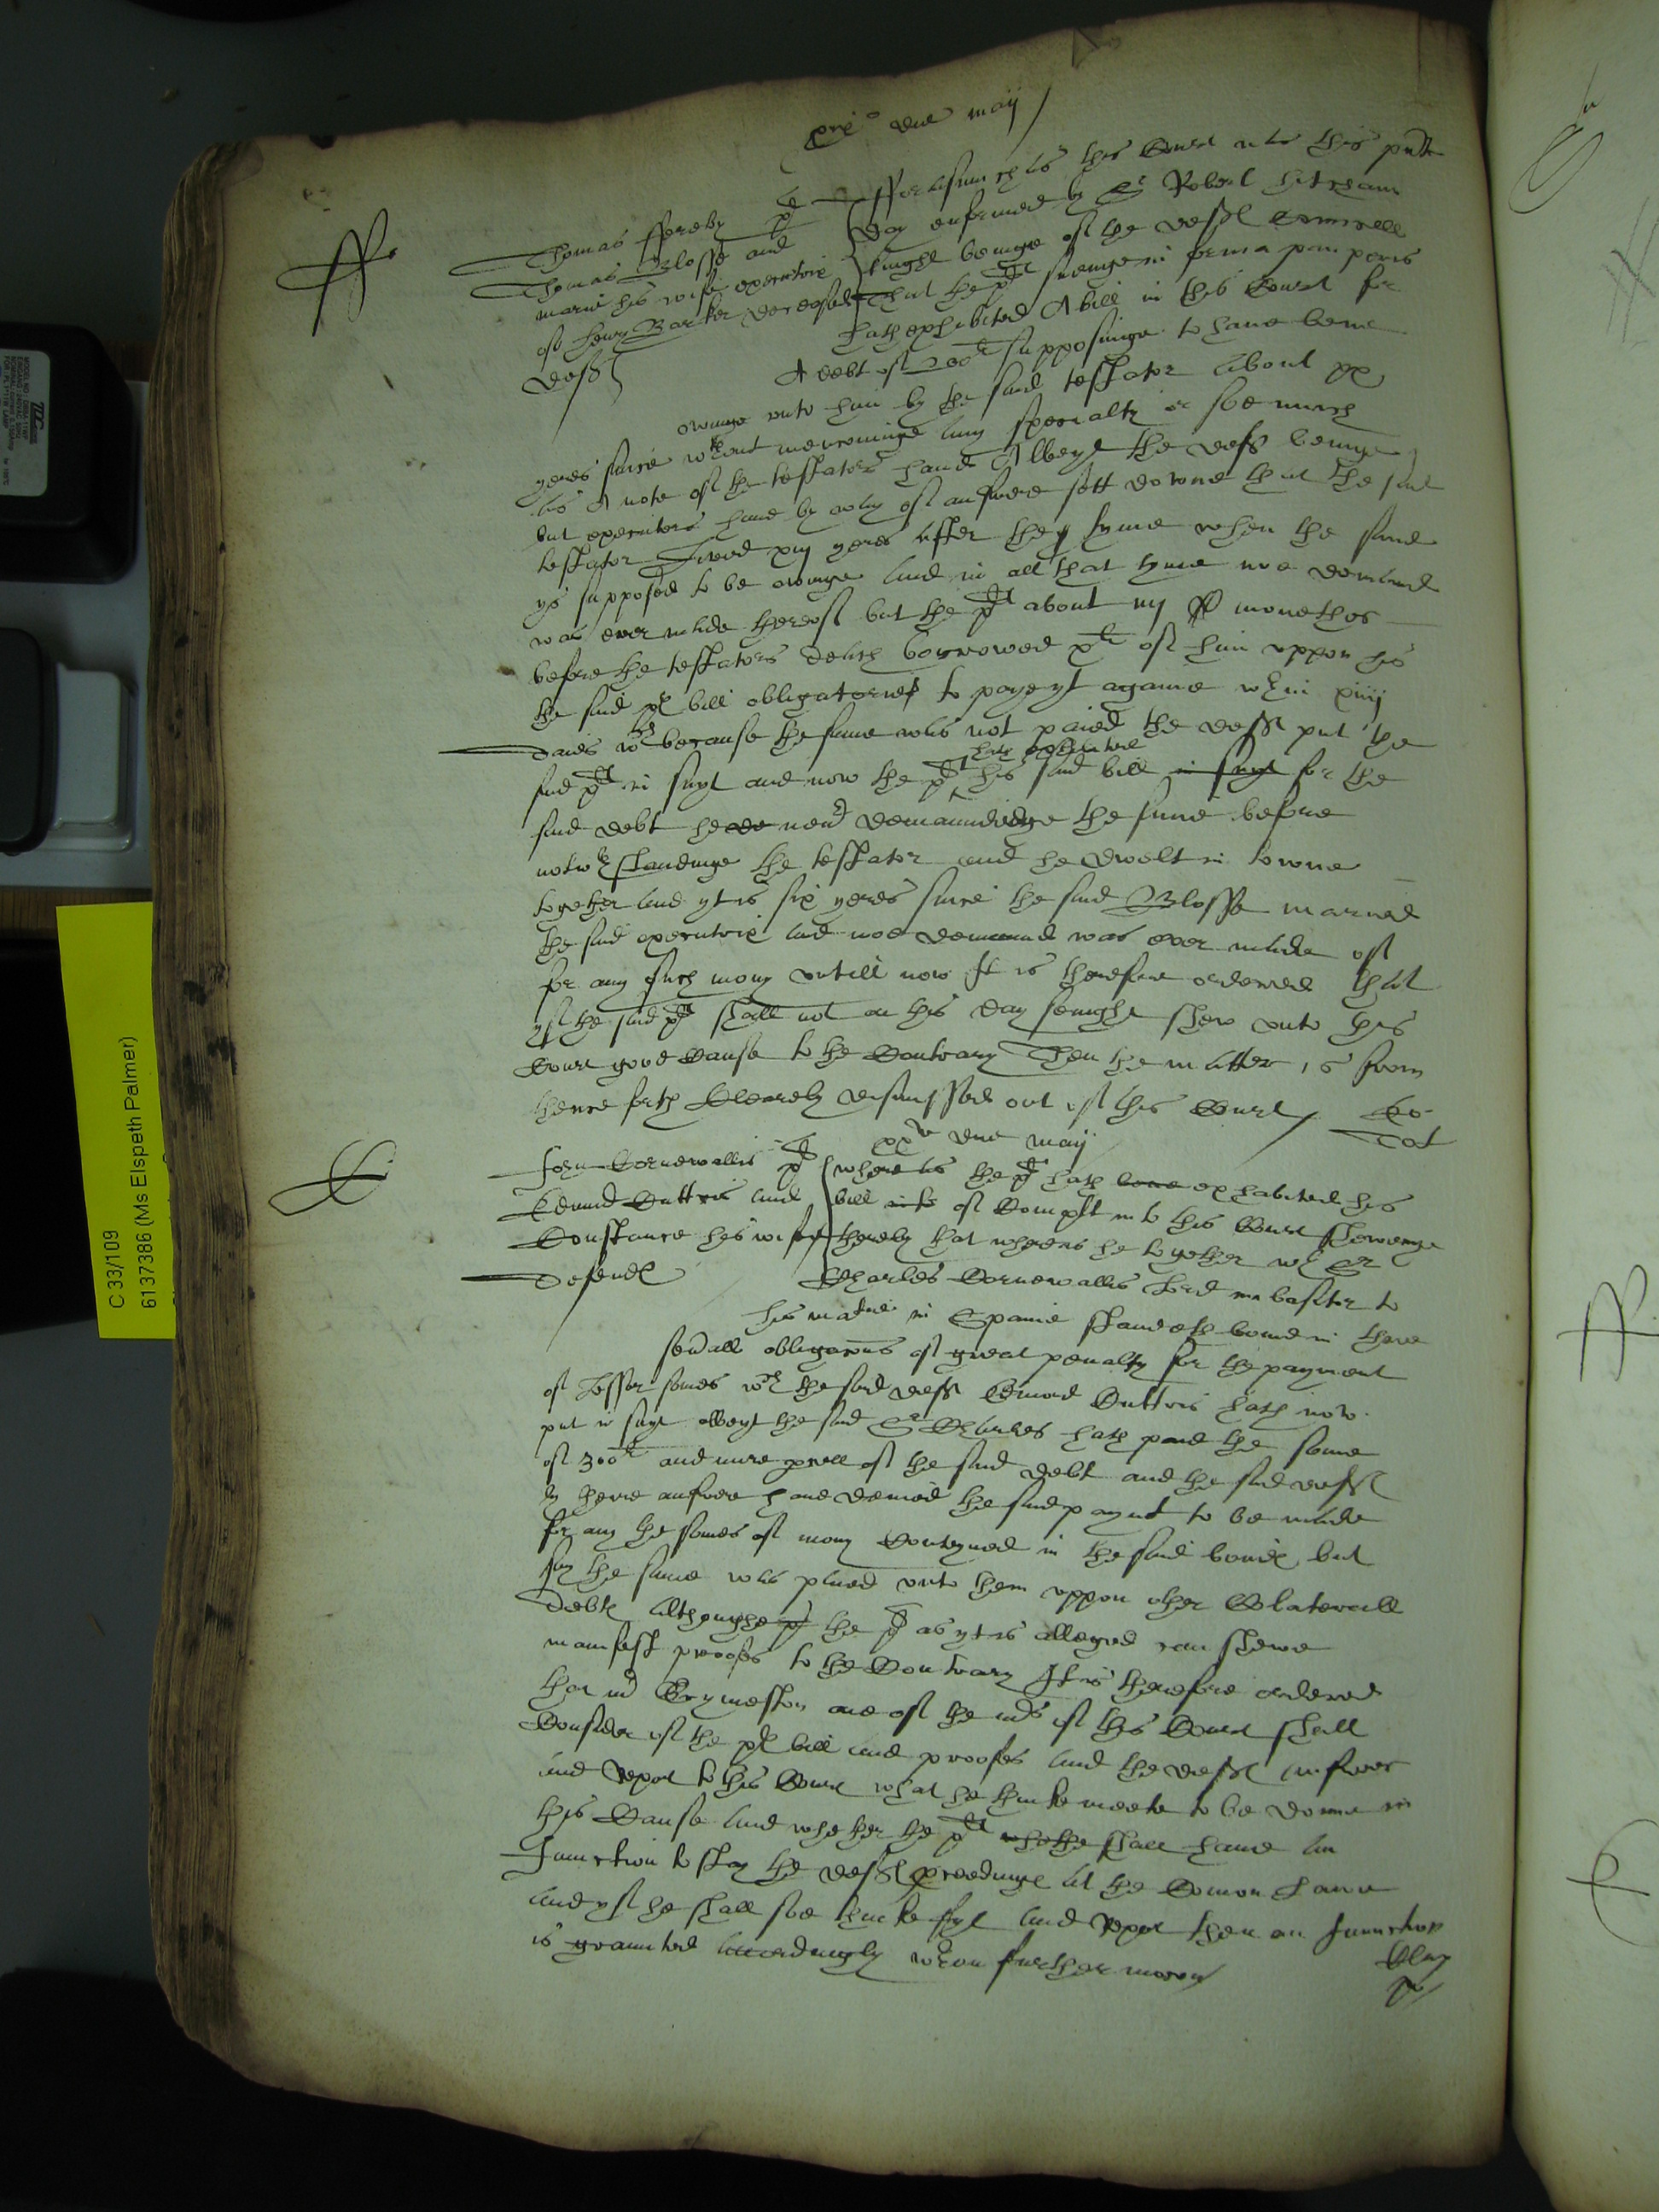 die maij
Thomas ffereby pl
Thomas Blosse and
marie his wife executrix
of henry Barker deceased
deftes
fforasmuch as this Court was this pnte
day enformed by Sr Robert hitcham
knight beinge of the deftes Councell
That the plt sueinge in forma pauperis
hath exhibited A bill in this Court for
A debt of 200li supposinge to have bene
owinge unto him by the said testator about xx
yeres since wthout mencioninge any specialty or soe much
as A note of the testators hand Albeyt the deftes beinge
but executors have by way of answere sett downe that the said
testator lived xiij yeres after the tyme when the same
ys supposed to be owinge and in all that tyme noe demaund
was ever made thereof but the plt about iij monethes
before the testators death borrowed xli of him uppon his
the said pl bill obligatorie to paye yt againe wthin xiiij
daies wch because the same was not paied the deftes put the
said plt in suyt and now the plt hath exhibited his said bill in suyt for the
said debt he never demaundinge the same before
notwthstandinge the testator and he dwelt in towne
together and yt is six yeres since the said Blosse maried
the said executrix and noe demaund was ever made of
for any such mony untill now It is therefore ordered that
yf the said plt shall not on this day senight shew unto this
Court good Cause to the Contrary Then the matter is from
hence forth Clearely dismissed out of this Court
xxo die maij
John Cornewallis pl
Edmund Duttris and
Constance his wife
defendtes
whereas the pl hath exhabited his
bill of Complt into this Court shewinge
thereby that whereas he together wth Sr
Charles Cornewallis lord embasitor to
his matie in Spaine standeth bound in three
severall obligacons of great penalty for the payment
of lesser somes wch the said deft Edmund Duttris hath now
put in suyt albeyt the said Sr Charles hath paid the some
of 300li and more pcell of the said debt and the said deftes
by there answere have denied the said paymt to be made
for any the somes of mony Conteyned in the said bondes but
say the same was paied unto them uppon other Colaterall
debtes Althoughe the pl as yt is alleged can shewe
manifest proofes to the Contrary It is therefore ordered
that mr Grymeston one of the mrs of this Court shall
Consider of the pl bill and proofes and the deftes answere
and Report to this Court what he thinke meete to be donne in
this Cause and whether the plt shall have an
Iniunction to stay the deftes proceedinges at the Comon Lawe
and yf he shall soe thinke fyt and Report then an Iniunction
is graunted accordingly wthout further mocon
C 33/109
6137386 (Ms Elspeth Palmer)